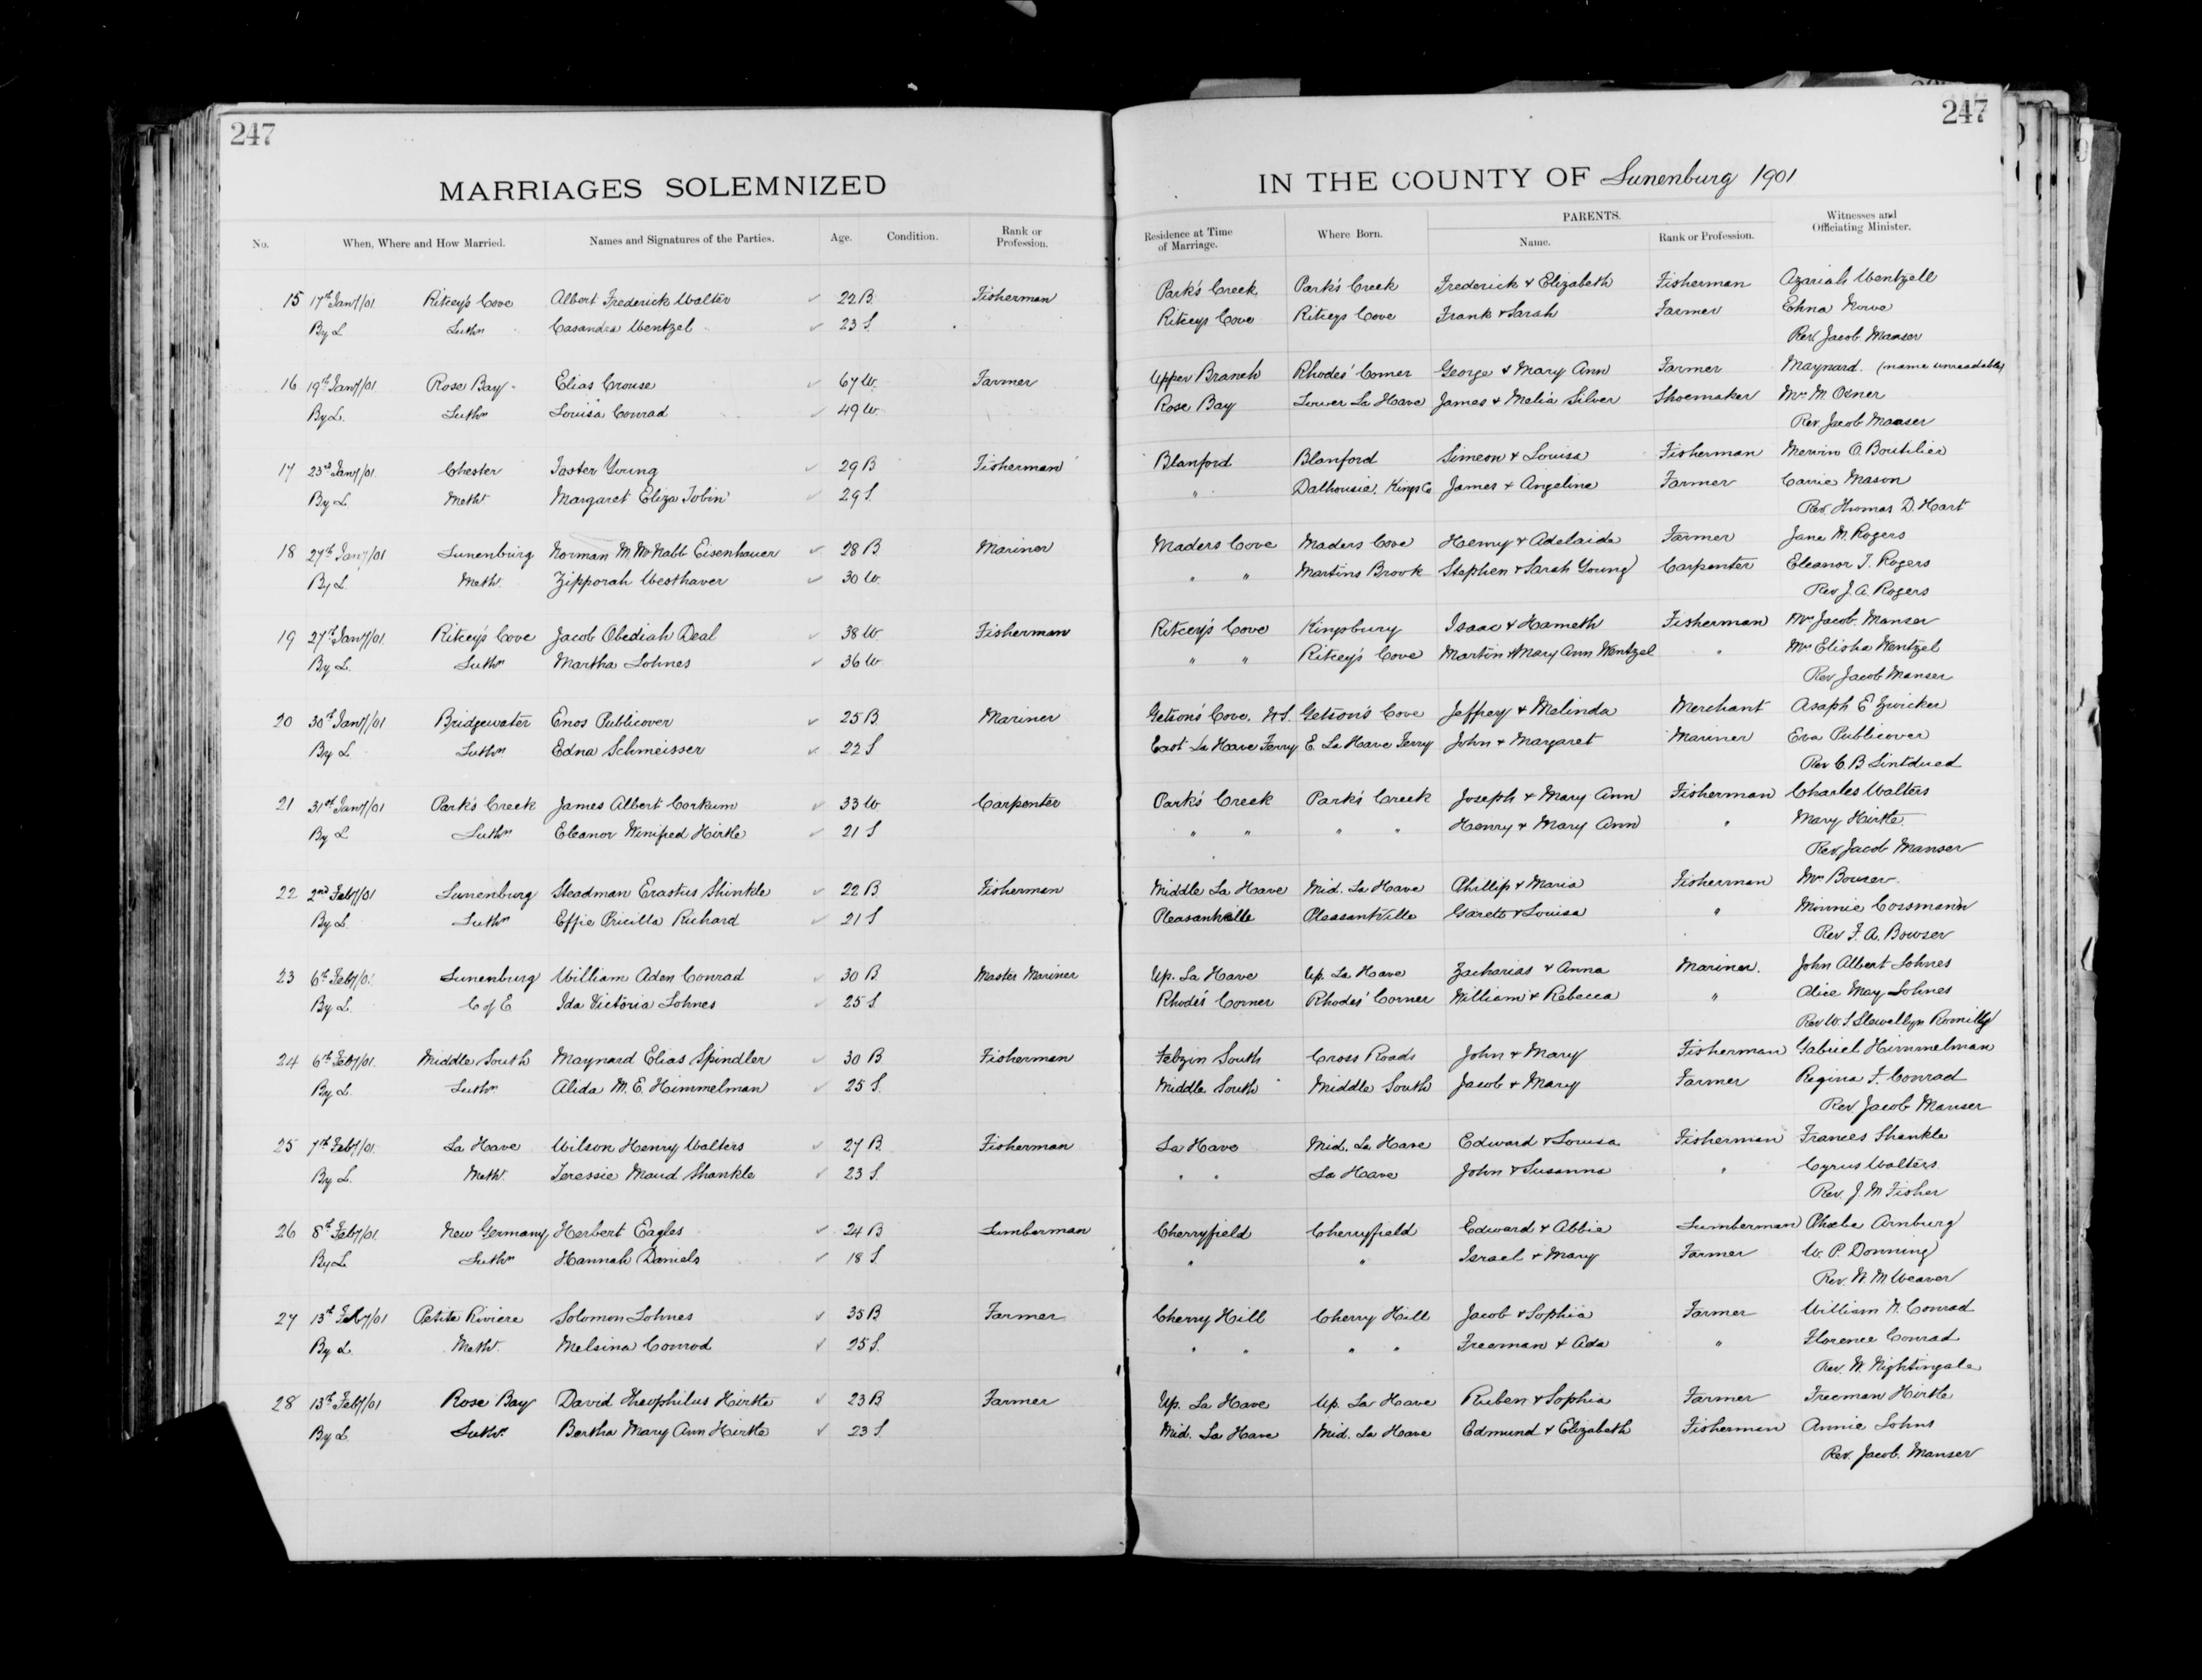 247
247
MARRIAGES SOLEMNIZED IN THE COUNTY OF Lunenburg 1901
No. When, Where and How Married. Names and Signatures of the Parties. Age. Condition. Rank or Profession. Residence at Time of Marriage. Where Born. PARENTS. Name. Rank or Profession. Witnesses and Officiating Minister.
15 17th Jany/01 Ritcey's Cove Albert Frederick Walter 22 B Fisherman Park's Creek Park's Creek Frederick & Elizabeth Fisherman Azariah Wentzell
By L Luthn Casandra Wentzel 23 S. Ritceys Cove Ritceys Cove Frank & Sarah Farmer Edna Nowe
Rev. Jacob Manser
16 19th Jany/01 Rose Bay Elias Crouse 67 W. Farmer Upper Branch Rhodes' Corner George & Mary Ann Farmer Maynard (name unreadable)
By L. Luthn Louisa Conrad 49 W Rose Bay Lower La Have James & Melia Silver Shoemaker Mrs M. Oxner
Rev. Jacob Manser
17 23rd Jany/01. Chester Foster Young 29 B Fisherman Blanford Blanford Simeon & Louisa Fisherman Mervin O. Boutilier
By L. Meth. Margaret Eliza Tobin 29 S. " Dalhousie, Kings Co James & Angeline Farmer Carrie Mason
Rev. Thomas D. Hart
18 27th Jany/01 Lunenburg Norman M. McNabb Eisenhauer 28 B Mariner Maders Cove Maders Cove Henry & Adelaide Farmer Jane M. Rogers
By L. Meth. Zipporah Westhaver 30 W. " " Martins Brook Stephen & Sarah Young Carpenter Eleanor T. Rogers
Rev J. A. Rogers
19 27th Jany/01. Ritcey's Cove Jacob Obediah Deal 38 W Fisherman Ritcey's Cove Kingsbury Isaac & Hameth Fisherman Mrs Jacob Manser
By L. Luthn Martha Lohnes 36 W " " Ritcey's Cove Martin & Mary Ann Wentzel " Mrs Elisha Wentzel
Rev Jacob Manser
20 30th Jany/01 Bridgewater Enos Publicover 25 B Mariner Getson's Cove, N.S. Getson's Cove Jeffrey & Melinda Merchant Asaph E Zwicker
By L Luthn Edna Schmeisser 22 S East La Have Ferry E. La Have Ferry John & Margaret Mariner Eva Publicover
Rev C. B Lintdued
21 31st Jany/01 Park's Creek James Albert Corkum 33 W Carpenter Park's Creek Park's Creek Joseph & Mary Ann Fisherman Charles Walters
By L Luthn Eleanor Winifred Hirtle 21 S " " " " Henry & Mary Ann " Mary Hirtle
Rev. Jacob Manser
22 2nd Feby/01 Lunenburg Steadman Erastus Shinkle 22 B Fisherman Middle La Have Mid. La Have Phillip & Maria Fisherman Mrs Bowser.
By L Luthn Effie Pricilla Richard 21 S Pleasantville PleasantVille Garett & Louisa " Minnie Cossmann
Rev F. A. Bowser
23 6th Feby/01 Lunenburg William Aden Conrad 30 B Master Mariner Up. La Have Up. La Have Zacharias & Anna Mariner. John Albert Lohnes
By L. C of E Ida Victoria Lohnes 25 S. Rhodes Corner Rhodes' Corner William & Rebecca " Alice May Lohnes
Rev W. S Llewellyn Romilly
24 6th Feby/01. Middle South Maynard Elias Spindler 30 B Fisherman Felzin South Cross Roads John & Mary Fisherman Gabriel Himmelman
By L. Luthn Alida M. E. Himmelman 25 S. Middle South Middle South Jacob & Mary Farmer Regina F. Conrad
Rev Jacob Manser
25 7th Feby/01. La Have Wilson Henry Walters 27 B Fisherman La Have Mid. La Have Edward & Louisa Fisherman Frances Shankle
By L. Meth. Teressie Maud Shankle 23 S. " " La Have John & Susanna " Cyrus Walters
Rev. J. M Fisher
26 8th Feby/01. New Germany Herbert Eagles 24 B Lumberman Cherryfield Cherryfield Edward & Abbie Lumberman Phoebe Arnburg
By L Luthn Hannah Daniels 18 S. " " Israel & Mary Farmer W. P. Donning
Rev. N. M Weaver
27 13th Feby/01 Petite Riviere Solomon Lohnes 35 B Farmer Cherry Hill Cherry Hill Jacob & Sophia Farmer William N. Conrad
By L. Meth. Melsina Conrod 25 S. " " " " Freeman & Ada " Florence Conrad
Rev. W. Nightingale
28 13th Feby/01 Rose Bay David Theophilus Hirtle 23 B Farmer Up. La Have Up. La Have Ruben & Sophia Farmer Freeman Hirtle
By L Luthn Bertha Mary Ann Hirtle 23 S. Mid. La Have Mid. La Have Edmund & Elizabeth Fisherman Annie Lohns
Rev. Jacob. Manser